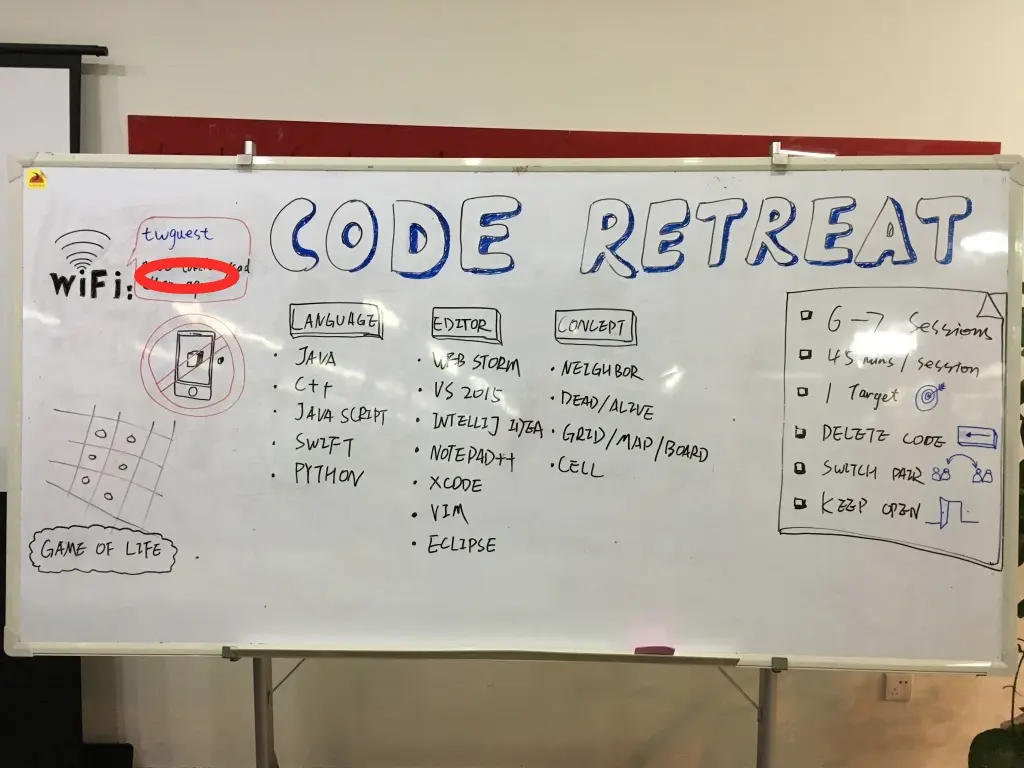 CODE RETREAT
twguest
WiFi:
GAME OF LIFE
LANGUAGE
· JAVA
· C++
· JAVA SCRIPT
· SWIFT
· PYTHON
EDITOR
· WEB STORM
· VS 2015
· INTELLIJ IDEA
· NOTEPAD++
· XCODE
· VIM
· ECLIPSE
CONCEPT
· NEIGHBOR
· DEAD/ALIVE
· GRID/MAP/BOARD
· CELL
6-7 Sessions
45 mins/session
1 Target
DELETE CODE
SWITCH PAIR
KEEP OPEN